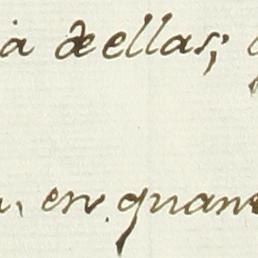 ia de ellas;
a, en quan